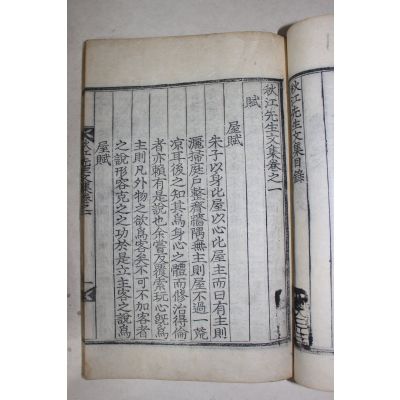 秋江先生文集目錄
秋江先生文集卷之一
賦
屋賦
朱子以身比屋以心比屋主而曰有主則
灑掃庭戶整齊牆隅無主則屋不過一荒
凉耳後之知其爲身心之體而修治得倫
者亦賴有是說也余嘗反覆索玩心旣爲
主則凡外物之欲爲客矣不可不加客者
之說形容克之之功於是立主客之說爲
屋賦
秋江先生文集卷之一